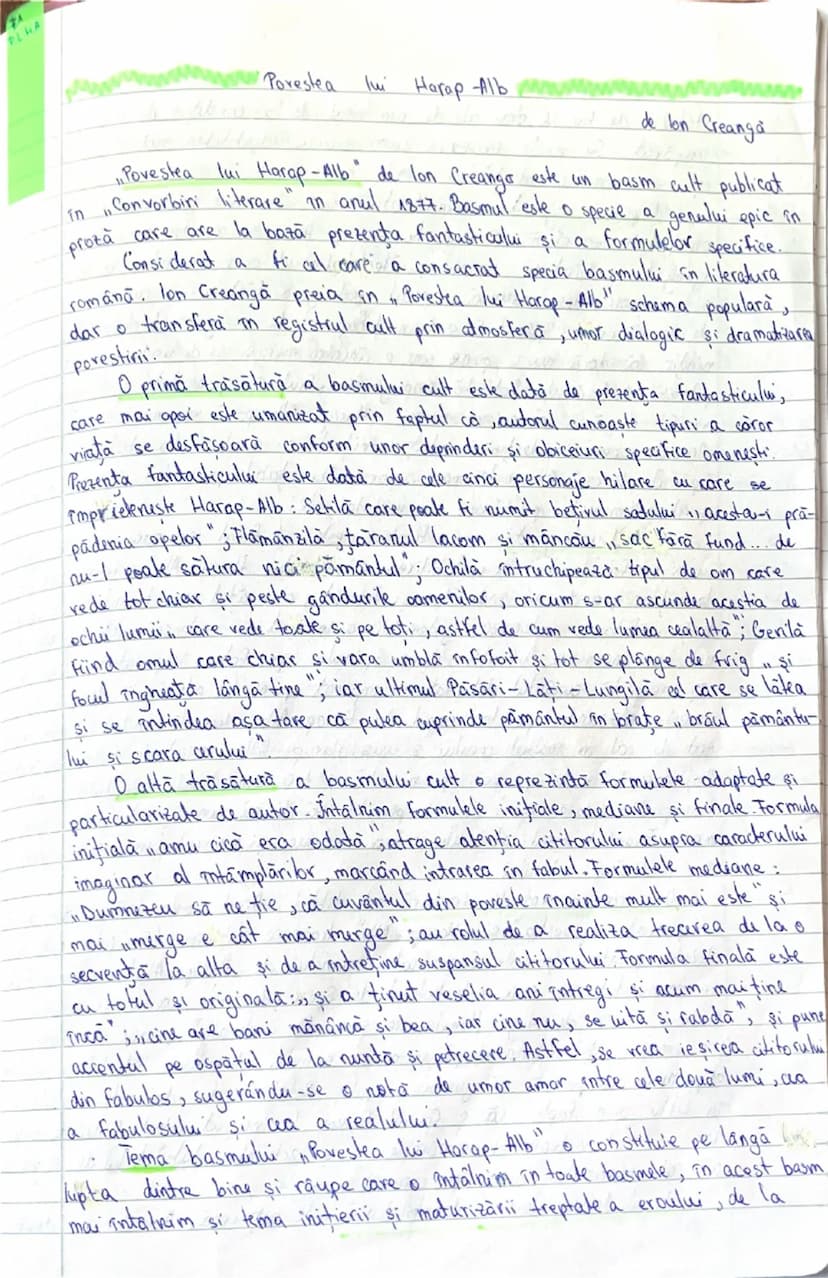 Povestea lui Harap-Alb
de Ion Creangă
„Povestea lui Harap-Alb" de Ion Creangă este un basm cult publicat
în „Convorbiri literare" în anul 1877. Basmul este o specie a genului epic în
proză care are la bază prezența fantasticului și a formulelor specifice.
Considerat a fi cel care a consacrat specia basmului în literatura
română. Ion Creangă preia în „Povestea lui Harap-Alb" schema populară,
dar o transferă în registrul cult prin atmosferă, umor dialogic și dramatizarea
povestirii.
O primă trăsătură a basmului cult este dată de prezența fantasticului,
care mai apoi este umanizat prin faptul că, autorul cunoaște tipuri a căror
viață se desfășoară conform unor deprinderi și obiceiuri specifice omenești.
Prezența fantasticului este dată de cele cinci personaje hilare cu care se
împrietenește Harap-Alb: Setilă care poate fi numit bețivul satului „acesta-i pră-
pădenia apelor"; Flămânzilă, țăranul lacom și mâncău „sac fără fund... de
nu-l poate sătura nici pământul"; Ochilă întruchipează tipul de om care
vede tot chiar și peste gândurile oamenilor, oricum s-ar ascunde aceștia de
ochii lumii „care vede toate și pe toți, astfel de cum vede lumea cealaltă"; Gerilă
fiind omul care chiar și vara umblă înfofolit și tot se plânge de frig „și
focul îngheață lângă tine"; iar ultimul Păsări-Lăți-Lungilă cel care se lătea
și se întindea așa tare, că putea cuprinde pământul în brațe „brâul pământu-
lui și scara cerului".
O altă trăsătură a basmului cult o reprezintă formulele adaptate și
particularizate de autor. Întâlnim formulele inițiale, mediane și finale. Formula
inițială „amu cică era odată", atrage atenția cititorului asupra caracterului
imaginar al întâmplărilor, marcând intrarea în fabul. Formulele mediane:
„Dumnezeu să ne ție, că cuvântul din poveste înainte mult mai este" și
mai „merge e cât mai merge"; au rolul de a realiza trecerea de la o
secvență la alta și de a întreține suspansul cititorului. Formula finală este
cu totul și originală: „și a ținut veselia ani întregi și acum mai ține
încă"; „cine are bani mănâncă și bea, iar cine nu, se uită și rabdă", și pune
accentul pe ospățul de la nuntă și petrecere. Astfel, se vrea ieșirea cititorului
din fabulos, sugerându-se o notă de umor amar între cele două lumi, cea
a fabulosului și cea a realului.
Tema basmului „Povestea lui Harap-Alb" o constituie pe lângă
lupta dintre bine și rău pe care o întâlnim în toate basmele, în acest basm
mai întâlnim și tema inițierii și maturizării treptate a eroului, de la